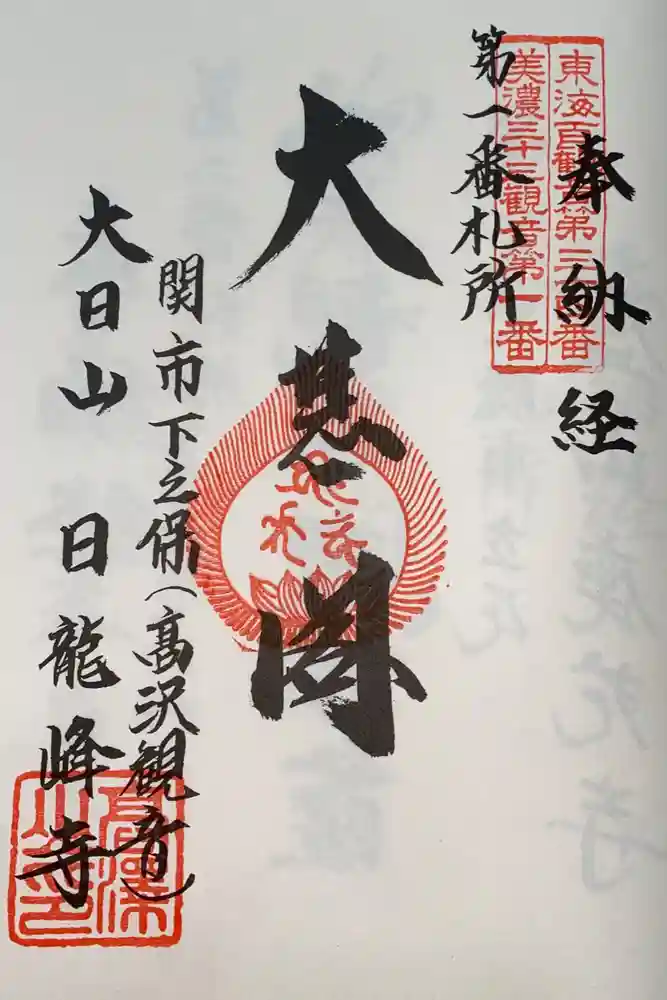 奉納経
東海百観音第三十四番
美濃三十三観音第一番
第一番札所
大悲閣
関市下之保(高沢観音)
大日山 日龍峰寺